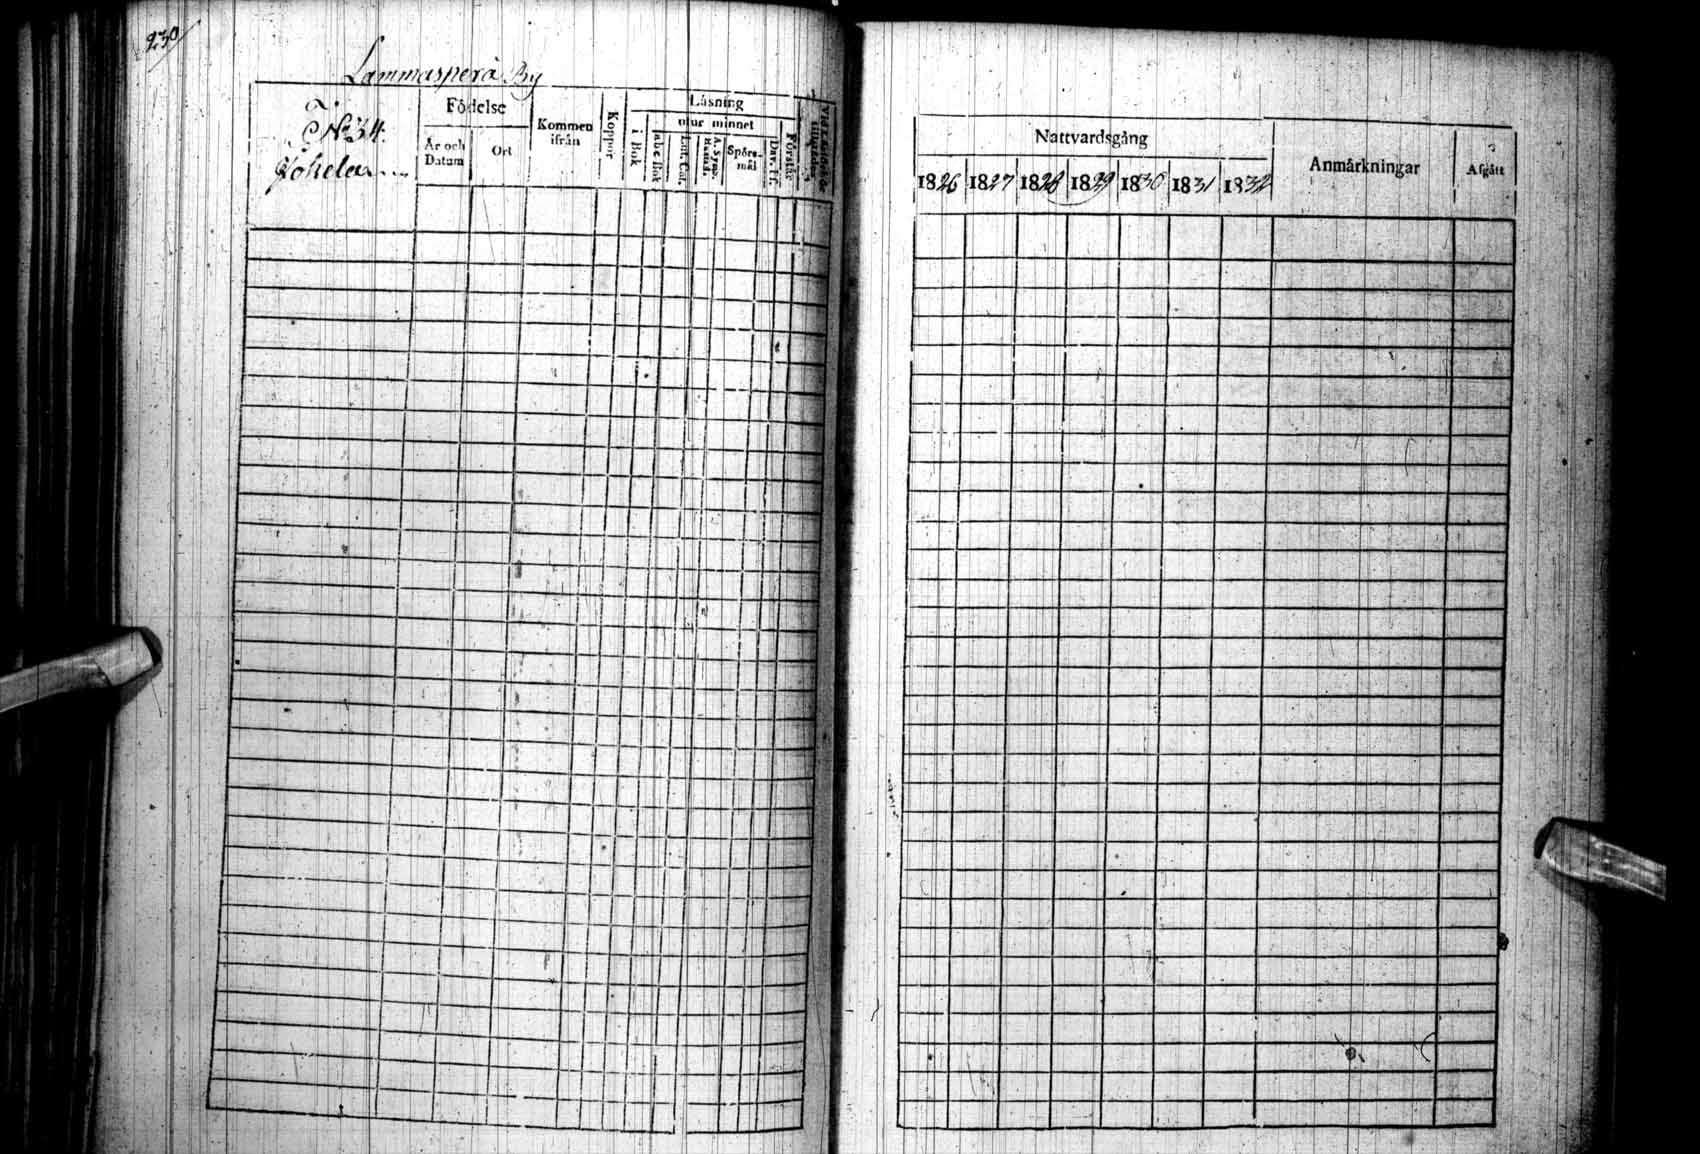 230
Lammasperä By
No 34.
Jokela
Födelse
År och Datum
Ort
Kommen ifrån
Koppor
Läsning
i Bok
utur minnet
abc Bok
Lut. Cat.
A. Symb.
Hustafl.
Spörs-
mål
Dav. Ps.
Förstår
Nattvardsgång
1826 1827 1828 1829 1830 1831 1832
Anmärkningar
Afgått